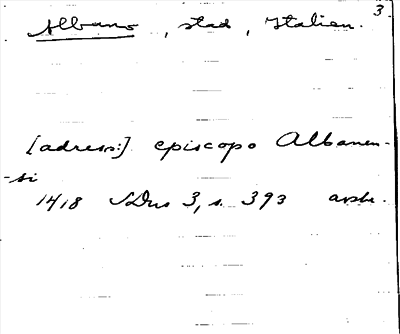 3
Albano, stad, Italien.
[adress:] episcopo Albanen-
-si
1418 SDns 3, s. 393 avskr.